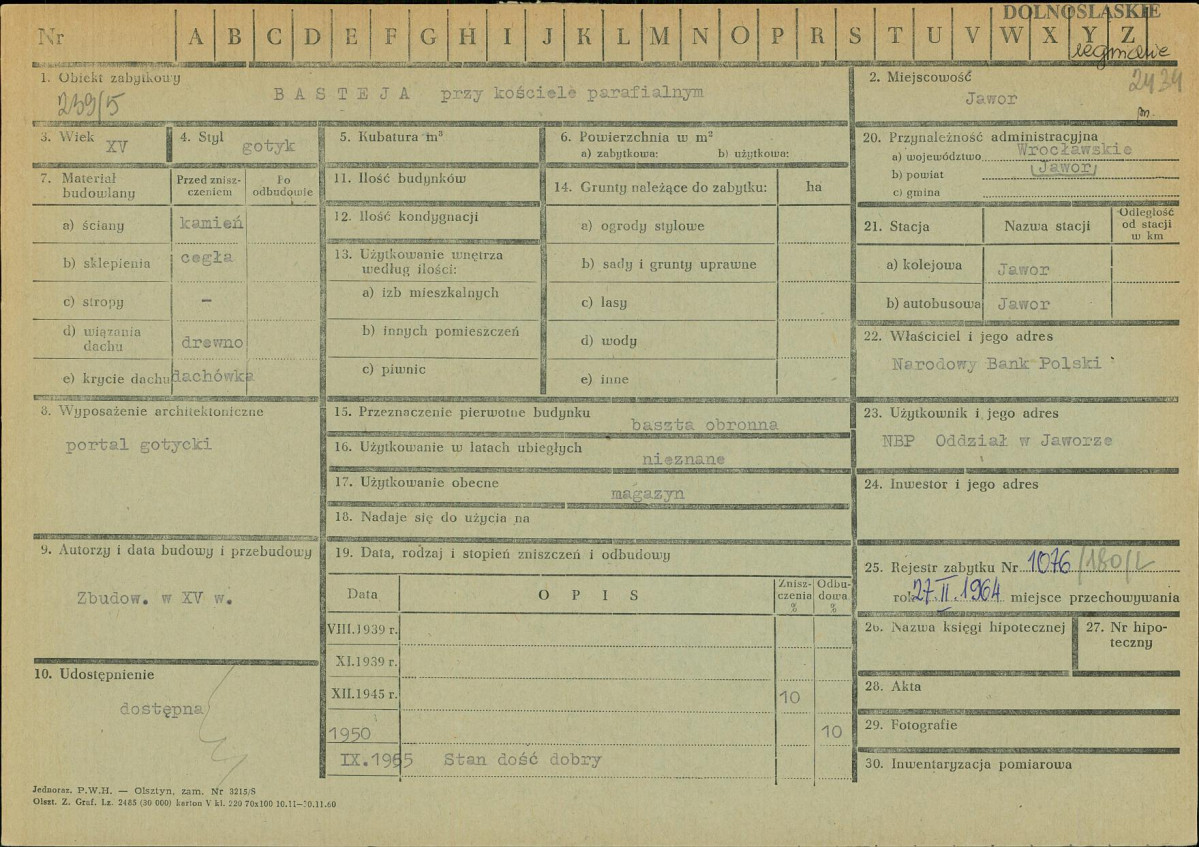 DOLNOŚLĄSKIE
Nr A B C D E F G H I J K L M N O P R S T U V W X Y Z
legnickie
1. Obiekt zabytkowy
239/5
BASTEJA przy kościele parafialnym
2. Miejscowość
2434
Jawor
3. Wiek
XV
4. Styl
gotyk
5. Kubatura m³
6. Powierzchnia w m²
a) zabytkowa: b) użytkowa:
20. Przynależność administracyjna
a) województwo Wrocławskie
b) powiat Jawor
c) gmina
7. Materiał budowlany
Przed zniszczeniem
Po odbudowie
a) ściany kamień
b) sklepienia cegła
c) stropy –
d) wiązania dachu drewno
e) krycie dachu dachówka
11. Ilość budynków
12. Ilość kondygnacji
13. Użytkowanie wnętrza według ilości:
a) izb mieszkalnych
b) innych pomieszczeń
c) piwnic
14. Grunty należące do zabytku: ha
a) ogrody stylowe
b) sady i grunty uprawne
c) lasy
d) wody
e) inne
21. Stacja
Nazwa stacji
Odległość od stacji w km
a) kolejowa Jawor
b) autobusowa Jawor
22. Właściciel i jego adres
Narodowy Bank Polski
8. Wyposażenie architektoniczne
portal gotycki
15. Przeznaczenie pierwotne budynku
baszta obronna
16. Użytkowanie w latach ubiegłych
nieznane
17. Użytkowanie obecne
magazyn
18. Nadaje się do użycia na
23. Użytkownik i jego adres
NBP Oddział w Jaworze
24. Inwestor i jego adres
9. Autorzy i data budowy i przebudowy
Zbudow. w XV w.
19. Data, rodzaj i stopień zniszczeń i odbudowy
Data OPIS Zniszczenia % Odbudowa %
VIII.1939 r.
XI.1939 r.
XII.1945 r. 10
1950 10
IX.1965 Stan dość dobry
25. Rejestr zabytku Nr 1076/180/L
rok 27.II.1964 miejsce przechowywania
26. Nazwa księgi hipotecznej
27. Nr hipoteczny
10. Udostępnienie
dostępna
28. Akta
29. Fotografie
30. Inwentaryzacja pomiarowa
Jednoraz. P.W.H. — Olsztyn, zam. Nr 3215/S
Olszt. Z. Graf. Lz. 2485 (30 000) karton V kl. 220 70x100 10.11—10.11.60